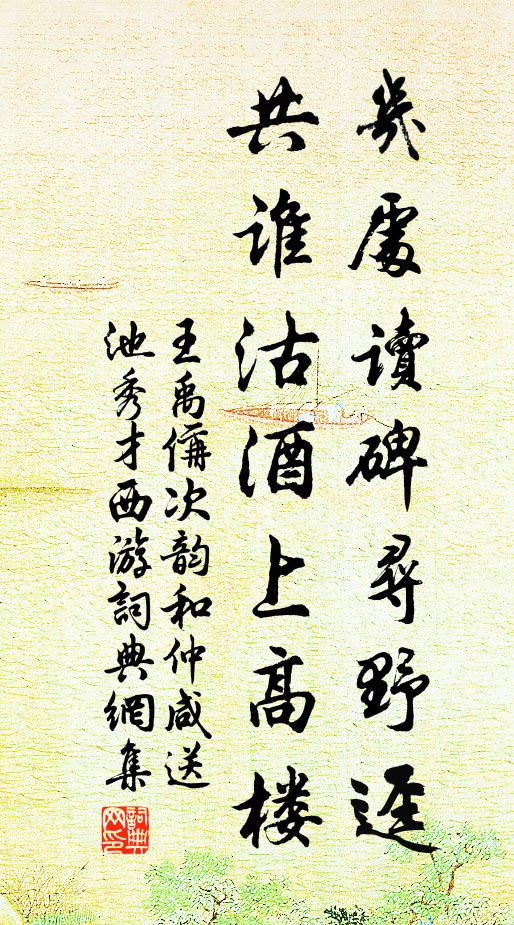 幾處讀碑尋野逕
共誰沽酒上高楼
王禹偁次韵和仲咸送
池秀才西游詞典網集
詞典网印